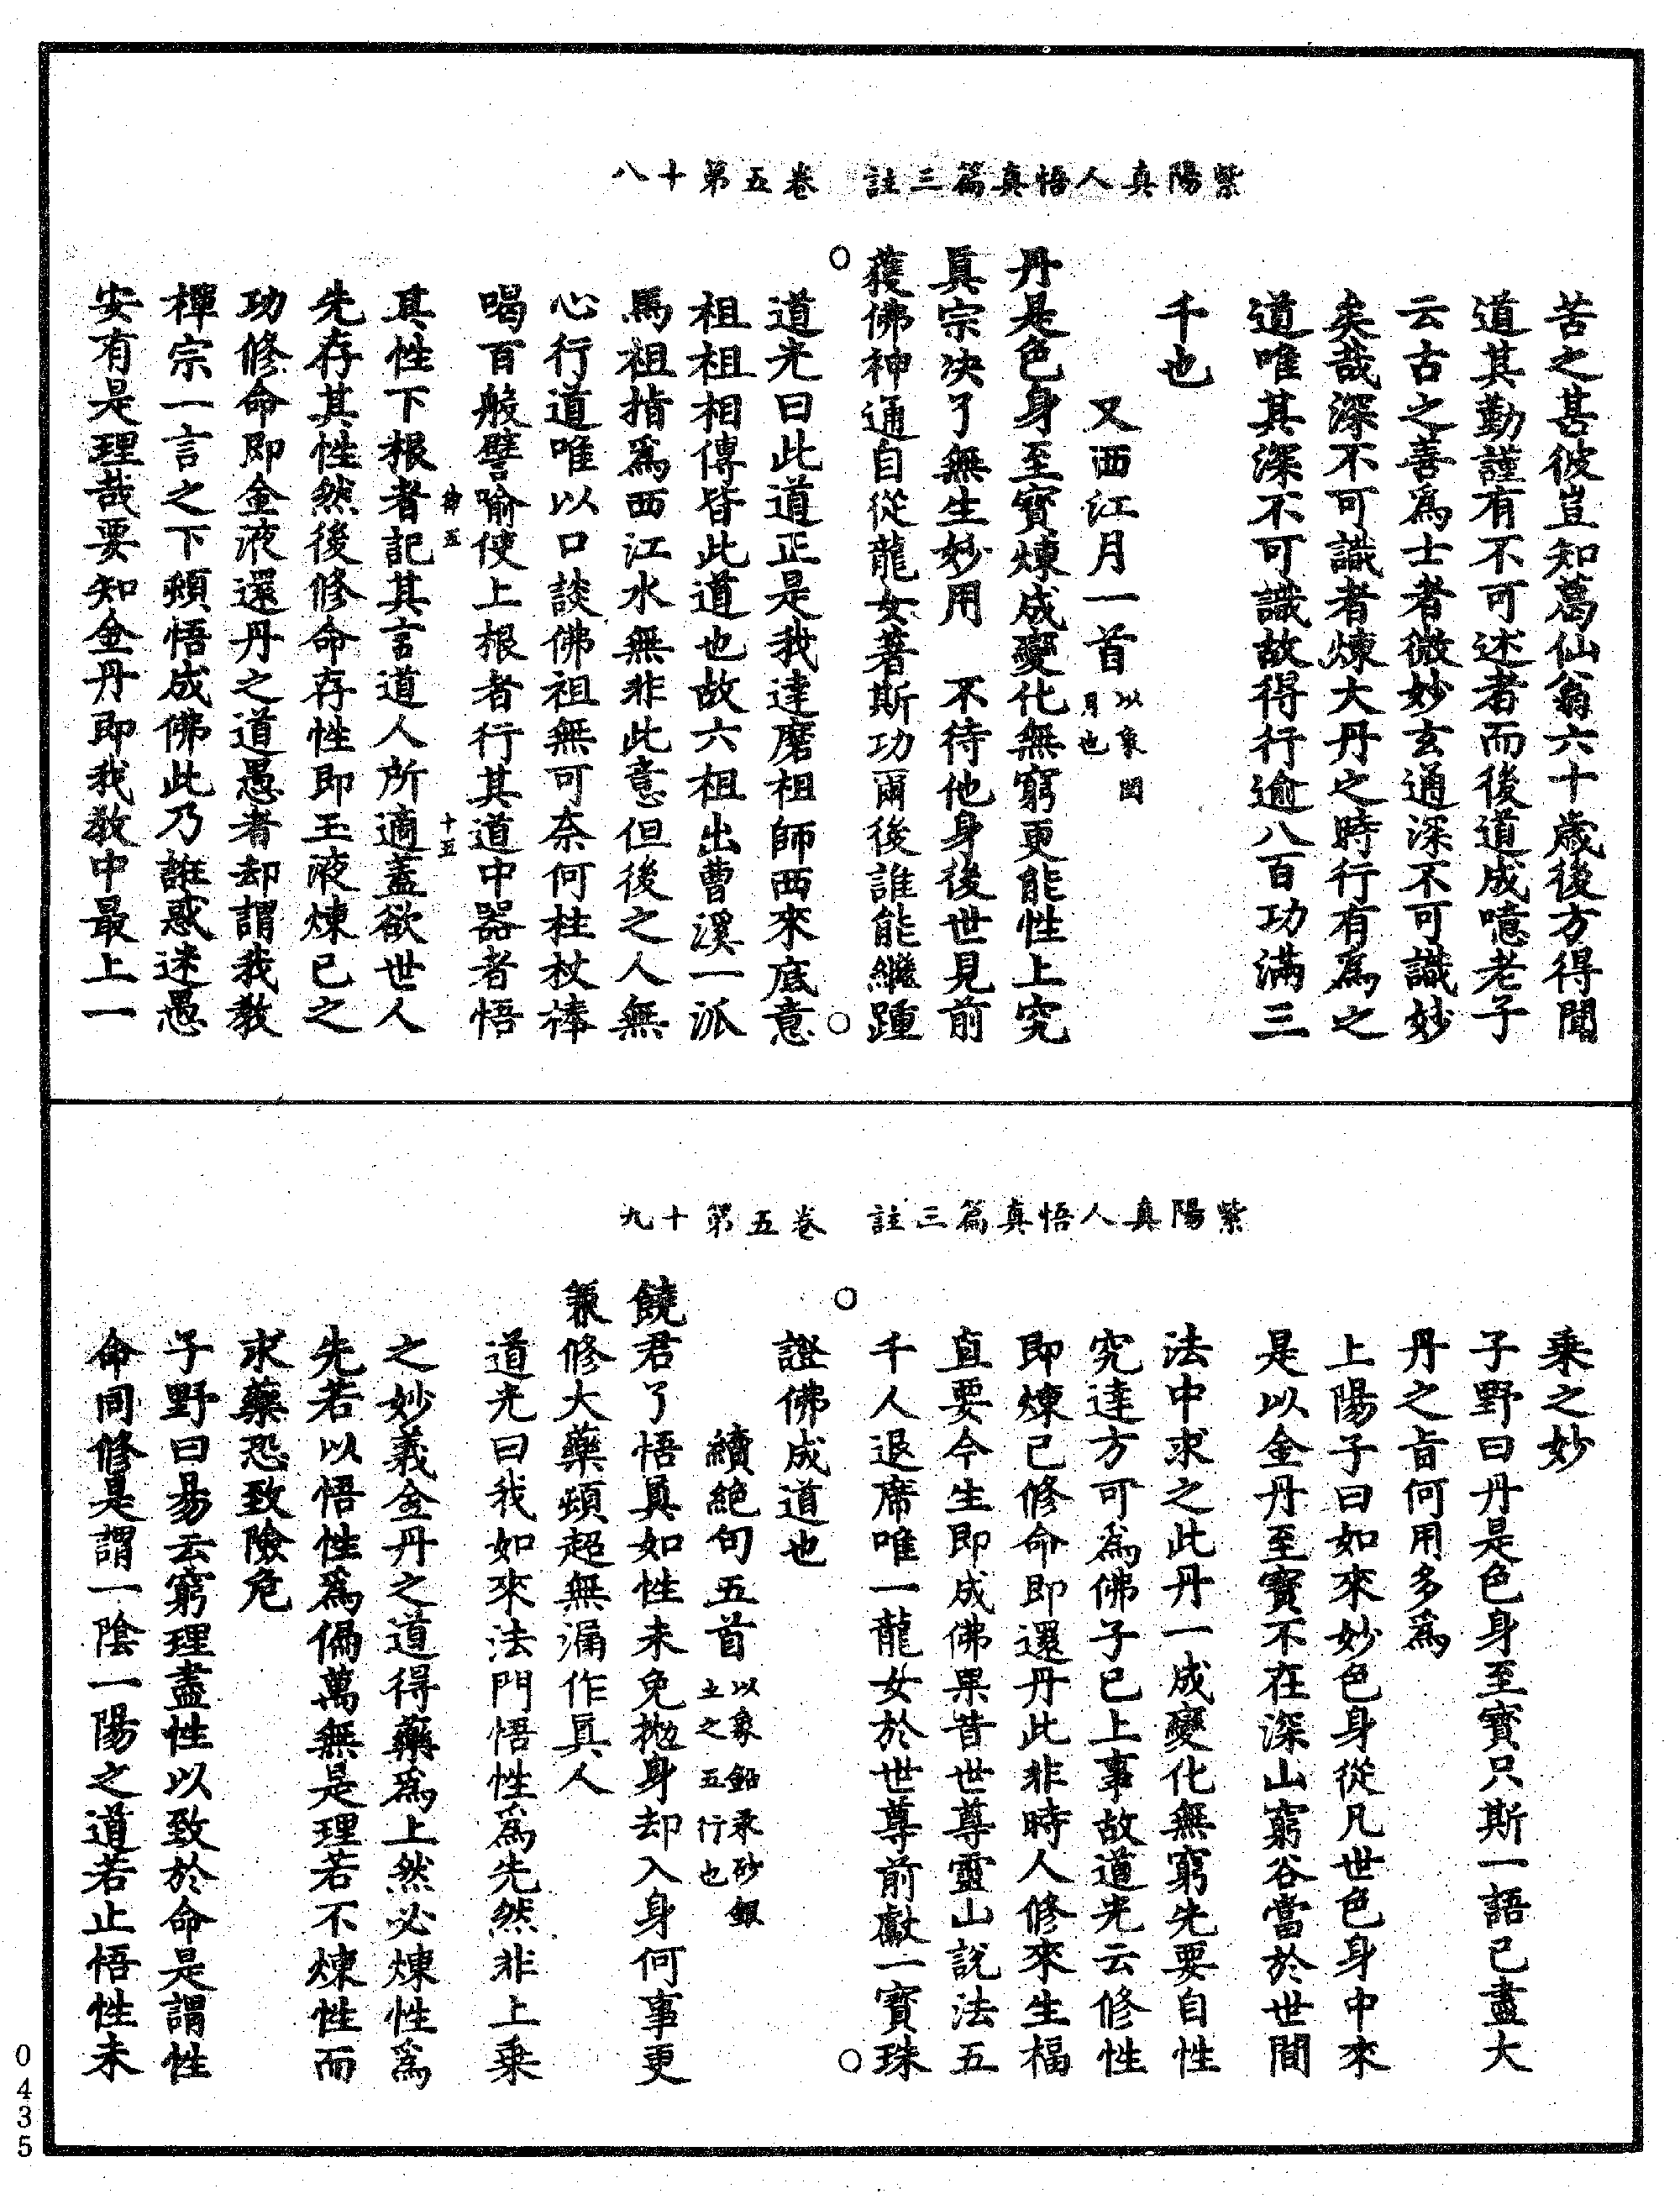 紫陽真人悟真篇三註　卷五第十八
苦之甚彼豈知葛仙翁六十歲後方得聞
道其勤謹有不可述者而後道成噫老子
云古之善為士者微妙玄通深不可識妙
矣哉深不可識者煉大丹之時行有為之
道唯其深不可識故得行逾八百功滿三
千也
又西江月一首以象閏月也
丹是色身至寶煉成變化無窮更能性上究
真宗决了無生妙用　不待他身後世見前
獲佛神通自從龍女著斯功爾後誰能繼踵
道光曰此道正是我達磨祖師西來底意
祖祖相傳皆此道也故六祖出曹溪一派
馬祖指為西江水無非此意但後之人無
心行道唯以口談佛祖無可奈何柱杖棒
喝百般譬喻使上根者行其道中器者悟
十五
其性下根者記其言道人所適蓋欲世人
先存其性然後修命存性即玉液煉已之
功修命即金液還丹之道愚者却謂我教
禪宗一言之下頓悟成佛此乃誑惑迷愚
安有是理哉要知金丹即我教中最上一
紫陽真人悟真篇三註　卷五第十九
乘之妙
子野曰丹是色身至寶只斯一語已盡大
丹之旨何用多為
上陽子曰如來妙色身從凡世色身中來
是以金丹至寶不在深山窮谷當於世間
法中求之此丹一成變化無窮先要自性
究達方可為佛子已上事故道光云修性
即煉已修命即還丹此非時人修來生福
直要今生即成佛果昔世尊靈山說法五
千人退席唯一龍女於世尊前獻一寶珠
證佛成道也
續絕句五首以象鉛汞砂銀土之五行也
饒君了悟真如性未免抛身却入身何事更
兼修大藥頓超無漏作真人
道光曰我如來法門悟性為先然非上乘
之妙義金丹之道得藥為上然必煉性為
先若以悟性為偏萬無是理若不煉性而
求藥恐致險危
子野曰易云窮理盡性以致於命是謂性
命同修是謂一陰一陽之道若止悟性未
0435